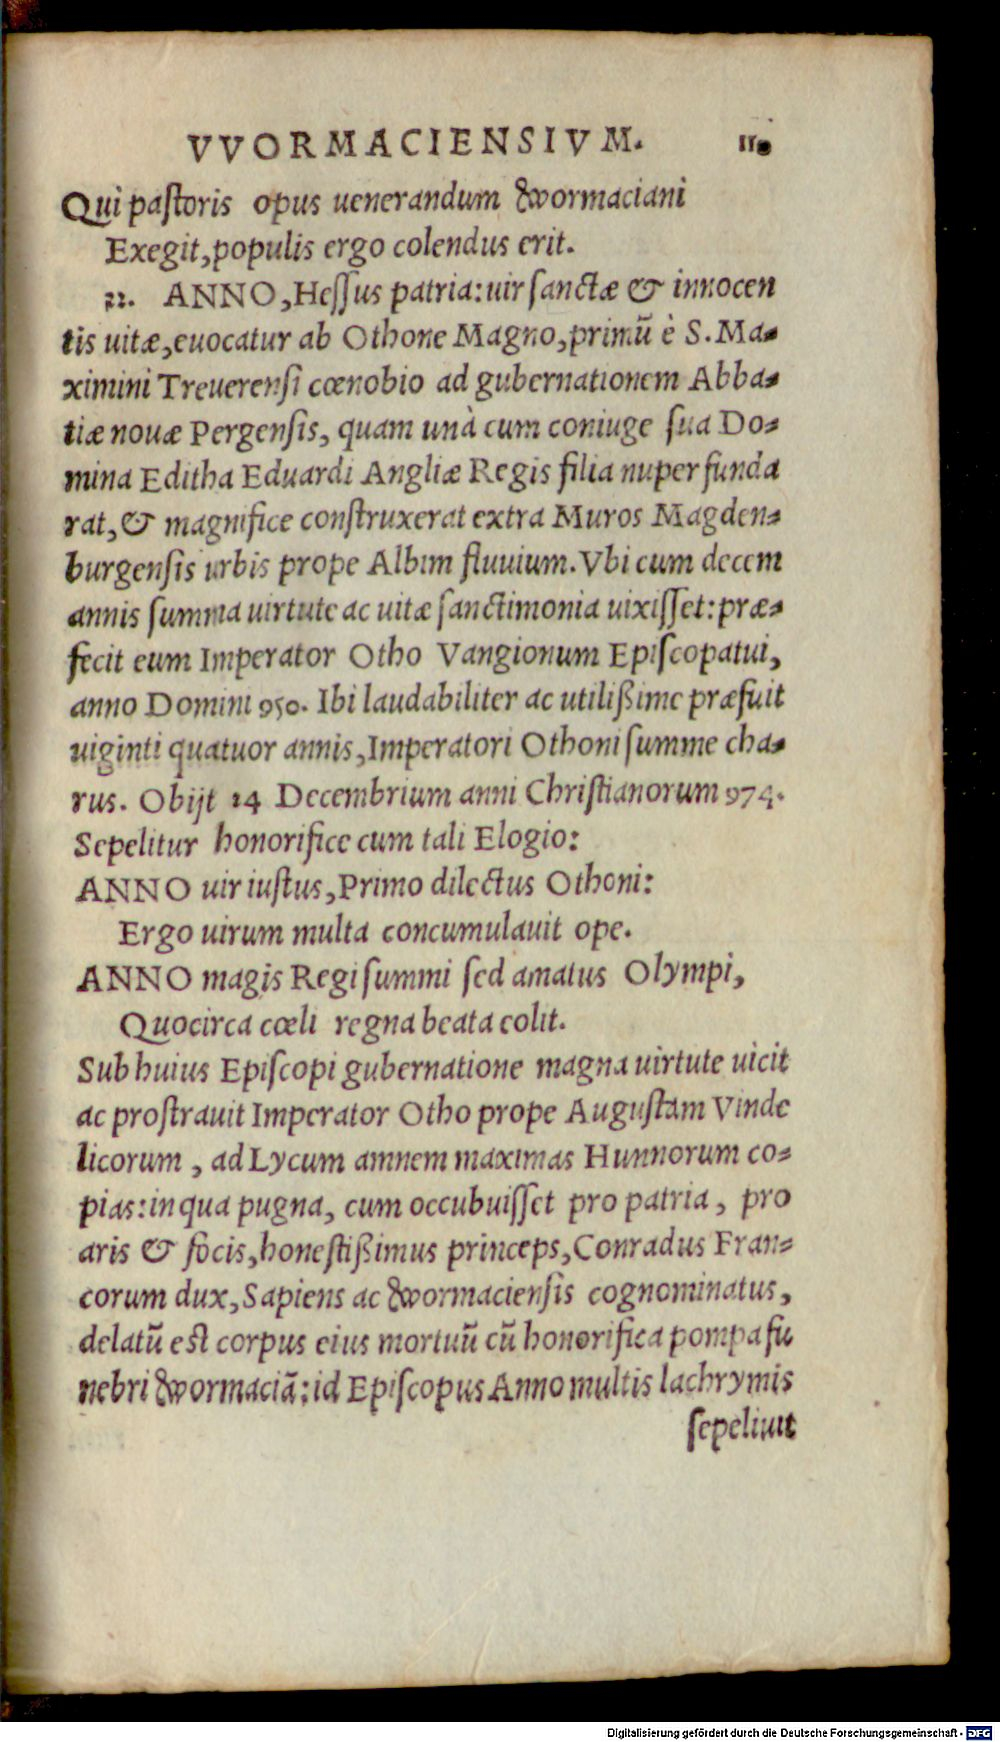 VVORMACIENSIVM.
Qui pastoris opus uenerandum Wormaciani
Exegit, populis ergo colendus erit.
22. ANNO, Hessus patria: uir sanctæ & innocen
tis uitæ, euocatur ab Othone Magno, primũ è S. Ma-
ximini Treuerensi cœnobio ad gubernationem Abba-
tiæ nouæ Pergensis, quam unà cum coniuge sua Do-
mina Editha Eduardi Angliæ Regis filia nuper funda
rat, & magnifice construxerat extra Muros Magden-
burgensis urbis prope Albim fluuium. Vbi cum decem
annis summa uirtute ac uitæ sanctimonia uixisset: præ-
fecit eum Imperator Otho Vangionum Episcopatui,
anno Domini 950. Ibi laudabiliter ac utilißime præfuit
uiginti quatuor annis, Imperatori Othoni summe cha-
rus. Obijt 24 Decembrium anni Christianorum 974.
Sepelitur honorifice cum tali Elogio:
ANNO uir iustus, Primo dilectus Othoni:
Ergo uirum multa concumulauit ope.
ANNO magis Regi summi sed amatus Olympi,
Quocirca cœli regna beata colit.
Sub huius Episcopi gubernatione magna uirtute uicit
ac prostrauit Imperator Otho prope Augustam Vinde
licorum, ad Lycum amnem maximas Hunnorum co-
pias: in qua pugna, cum occubuisset pro patria, pro
aris & focis, honestißimus princeps, Conradus Fran-
corum dux, Sapiens ac Wormaciensis cognominatus,
delatũ est corpus eius mortuũ cũ honorifica pompa fu
nebri Wormaciã: id Episcopus Anno multis lachrymis
sepeliuit
Digitalisierung gefördert durch die Deutsche Forschungsgemeinschaft - DFG